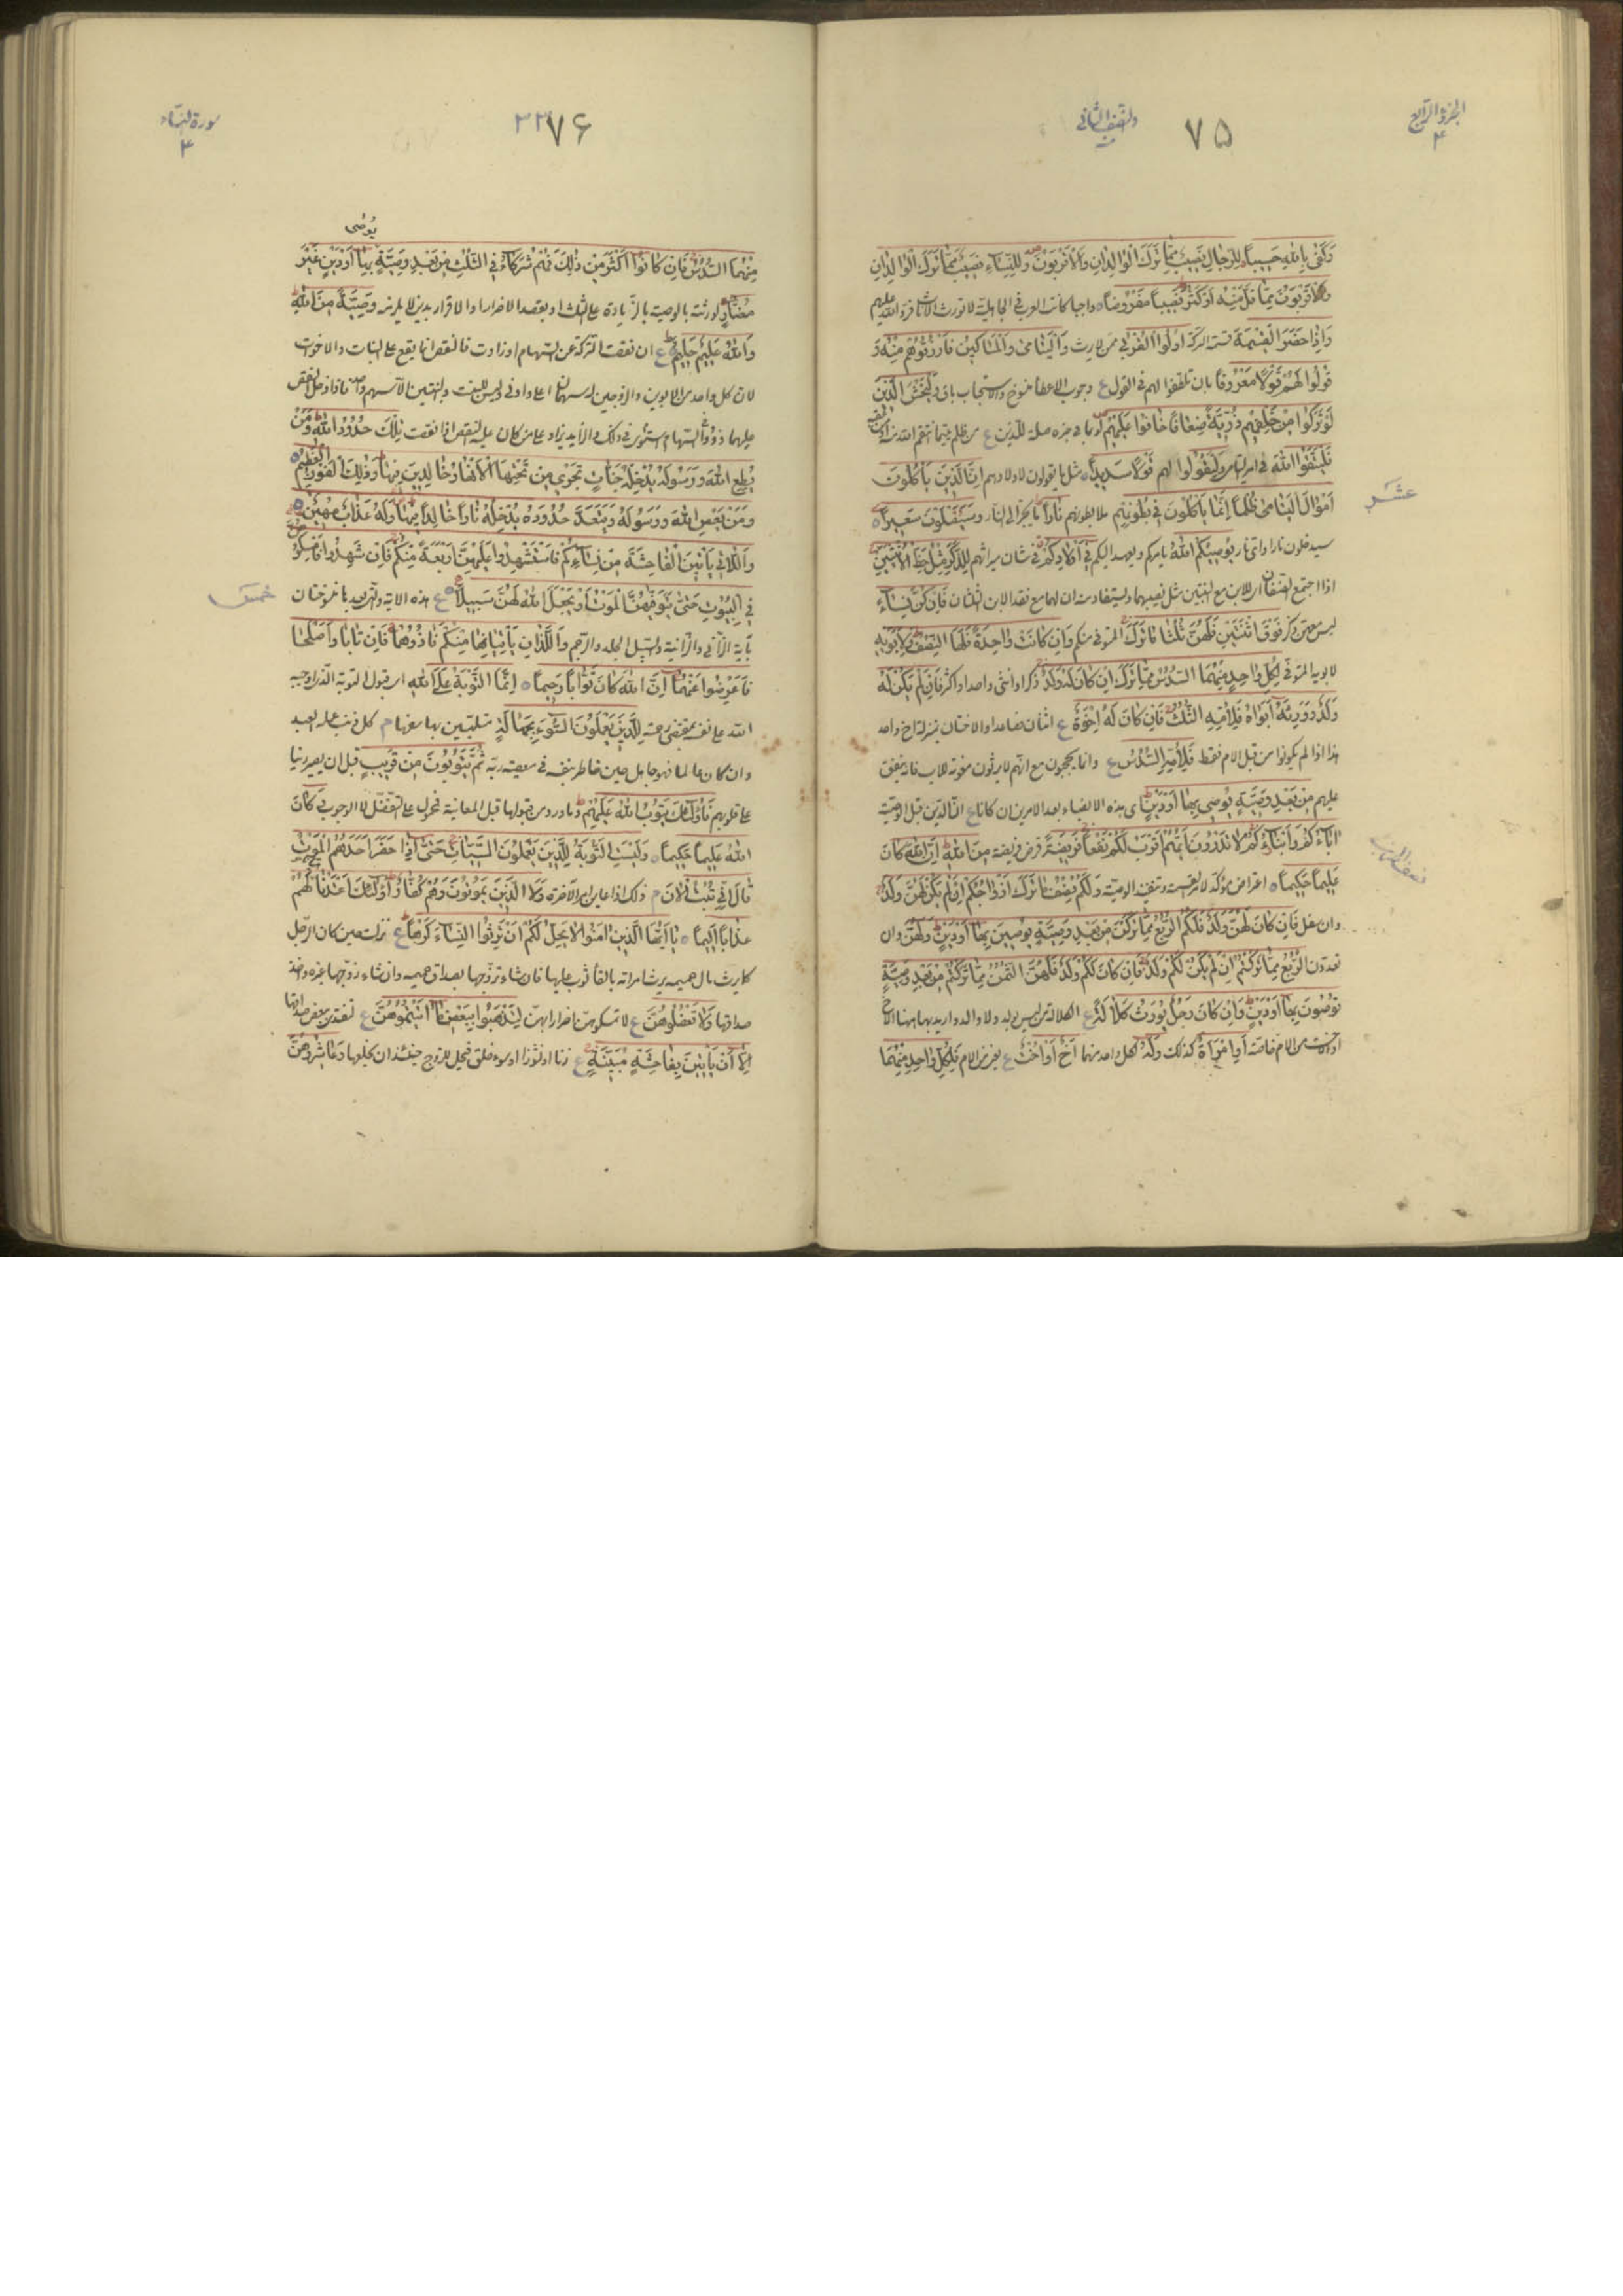 الجزء الرابع
۴
۷۵
والنصف الثانی
وَكَفٰى بِاللّٰهِ حَسِيباً لِلرِّجَالِ نَصِيبٌ مِمَّا تَرَكَ الْوَالِدَانِ وَالْاَقْرَبُونَ وَلِلنِّسَاءِ نَصِيبٌ مِمَّا تَرَكَ الْوَالِدَانِ
وَالْاَقْرَبُونَ مِمَّا قَلَّ مِنْهُ اَوْ كَثُرَ نَصِيباً مَفْرُوضاً واجبا كانت العرب فی الجاهلية لا تورث الاناث فرد الله عليهم
وَاِذَا حَضَرَ الْقِسْمَةَ قسمة التركة اُولُوا الْقُرْبٰى ممن لا يرث وَالْيَتَامٰى وَالْمَسَاكِينُ فَارْزُقُوهُمْ مِنْهُ وَ
قُولُوا لَهُمْ قَوْلاً مَعْرُوفاً بان تلطفوا لهم فی القول ع وجوب الاعطاء منسوخ والاستحباب باق وَلْيَخْشَ الَّذِينَ
لَوْ تَرَكُوا مِنْ خَلْفِهِمْ ذُرِّيَّةً ضِعَافاً خَافُوا عَلَيْهِمْ لو بما فی حيزه صلة للذين ع من ظلم يتيما انتقم الله منه
فَلْيَتَّقُوا اللّٰهَ فی امر اليتامى وَلْيَقُولُوا لهم قَوْلاً سَدِيداً مثل ما يقولون لاولادهم اِنَّ الَّذِينَ يَأْكُلُونَ
اَمْوَالَ الْيَتَامٰى ظُلْماً اِنَّمَا يَأْكُلُونَ فِي بُطُونِهِمْ ملا بطونهم نَاراً ما يجر الى النار وَسَيَصْلَوْنَ سَعِيراً
عشر
سيدخلون نارا وای نار يُوصِيكُمُ اللّٰهُ يامركم ويعهد اليكم فِي اَوْلَادِكُمْ فی شان ميراثهم لِلذَّكَرِ مِثْلُ حَظِّ الْاُنْثَيَيْنِ
اذا اجتمع الصنفان ای للابن مع البنتين مثل نصيبهما ويستفاد منه ان لهما مع فقد الابن الثلثان فَاِنْ كُنَّ نِسَاءً
ليس معهن ذكر فَوْقَ اثْنَتَيْنِ فَلَهُنَّ ثُلُثَا مَا تَرَكَ المتوفى منكم وَاِنْ كَانَتْ وَاحِدَةً فَلَهَا النِّصْفُ وَلِاَبَوَيْهِ
لابوی المتوفى لِكُلِّ وَاحِدٍ مِنْهُمَا السُّدُسُ مِمَّا تَرَكَ اِنْ كَانَ لَهُ وَلَدٌ ذكر او انثى واحد او اكثر فَاِنْ لَمْ يَكُنْ لَهُ
وَلَدٌ وَوَرِثَهُ اَبَوَاهُ فَلِاُمِّهِ الثُّلُثُ فَاِنْ كَانَ لَهُ اِخْوَةٌ ع اثنان فصاعدا والاختان بمنزلة اخ واحد
هذا اذا لم يكونوا من قبل الام فقط فَلِاُمِّهِ السُّدُسُ ع وانما يحجبون مع انهم لا يرثون معونة للاب فانه ينفق
عليهم مِنْ بَعْدِ وَصِيَّةٍ يُوصِي بِهَا اَوْ دَيْنٍ ای هذه الانصباء بعد الامرين ان كانا ع ان الدين قبل الوصية
اٰبَاؤُكُمْ وَاَبْنَاؤُكُمْ لَا تَدْرُونَ اَيُّهُمْ اَقْرَبُ لَكُمْ نَفْعاً فَرِيضَةً فرض فريضة مِنَ اللّٰهِ اِنَّ اللّٰهَ كَانَ
نصف الحزب
عَلِيماً حَكِيماً اعتراض مؤكد لامر القسمة وتنفيذ الوصية وَلَكُمْ نِصْفُ مَا تَرَكَ اَزْوَاجُكُمْ اِنْ لَمْ يَكُنْ لَهُنَّ وَلَدٌ
وان سفل فَاِنْ كَانَ لَهُنَّ وَلَدٌ فَلَكُمُ الرُّبُعُ مِمَّا تَرَكْنَ مِنْ بَعْدِ وَصِيَّةٍ يُوصِينَ بِهَا اَوْ دَيْنٍ وَلَهُنَّ وان
تعددن الرُّبُعُ مِمَّا تَرَكْتُمْ اِنْ لَمْ يَكُنْ لَكُمْ وَلَدٌ فَاِنْ كَانَ لَكُمْ وَلَدٌ فَلَهُنَّ الثُّمُنُ مِمَّا تَرَكْتُمْ مِنْ بَعْدِ وَصِيَّةٍ
تُوصُونَ بِهَا اَوْ دَيْنٍ وَاِنْ كَانَ رَجُلٌ يُورَثُ كَلَالَةً ع الكلالة من ليس بولد ولا والد واريد بها هنا الاخ
او الاخت من الام خاصة اَوِ امْرَاَةٌ كذلك وَلَهُ لكل واحد منهما اَخٌ اَوْ اُخْتٌ ع من الام فَلِكُلِّ وَاحِدٍ مِنْهُمَا
۷۶
سورة النساء
۴
يُوصٰى
مِنْهُمَا السُّدُسُ فَاِنْ كَانُوا اَكْثَرَ مِنْ ذٰلِكَ فَهُمْ شُرَكَاءُ فِي الثُّلُثِ مِنْ بَعْدِ وَصِيَّةٍ بِهَا اَوْ دَيْنٍ غَيْرَ
مُضَارٍّ لورثته بالوصية بالزيادة على الثلث او بقصد الاضرار او الاقرار بدين لا يلزمه وَصِيَّةً مِنَ اللّٰهِ
وَاللّٰهُ عَلِيمٌ حَلِيمٌ ع ان نقصت التركة عن السهام او زادت فالنقص انما يقع على البنات والاخوات
لان كل واحد من الابوين والزوجين له سهمان اعلى وادنى وليس للبنت والبنتين الا سهم واحد فاذا دخل النقص
عليهما ذووا السهام استوى فی ذلك والا يزاد على من كان عليه النقص اذا نقصت تِلْكَ حُدُودُ اللّٰهِ وَمَنْ
يُطِعِ اللّٰهَ وَرَسُولَهُ يُدْخِلْهُ جَنَّاتٍ تَجْرِي مِنْ تَحْتِهَا الْاَنْهَارُ خَالِدِينَ فِيهَا وَذٰلِكَ الْفَوْزُ الْعَظِيمُ
وَمَنْ يَعْصِ اللّٰهَ وَرَسُولَهُ وَيَتَعَدَّ حُدُودَهُ يُدْخِلْهُ نَاراً خَالِداً فِيهَا وَلَهُ عَذَابٌ مُهِينٌ
وَاللَّاتِي يَأْتِينَ الْفَاحِشَةَ مِنْ نِسَائِكُمْ فَاسْتَشْهِدُوا عَلَيْهِنَّ اَرْبَعَةً مِنْكُمْ فَاِنْ شَهِدُوا فَاَمْسِكُوهُنَّ
خمس
فِي الْبُيُوتِ حَتّٰى يَتَوَفّٰهُنَّ الْمَوْتُ اَوْ يَجْعَلَ اللّٰهُ لَهُنَّ سَبِيلاً ع هذه الاية والتی بعدها منسوختان
بآية الزانی والزانية والسبيل الجلد والرجم وَاللَّذَانِ يَأْتِيَانِهَا مِنْكُمْ فَاٰذُوهُمَا فَاِنْ تَابَا وَاَصْلَحَا
فَاَعْرِضُوا عَنْهُمَا اِنَّ اللّٰهَ كَانَ تَوَّاباً رَحِيماً اِنَّمَا التَّوْبَةُ عَلَى اللّٰهِ ای قبول التوبة الذی اوجبه
الله على نفسه بمقتضى رحمته لِلَّذِينَ يَعْمَلُونَ السُّوءَ بِجَهَالَةٍ متلبسين بها سفها م كل ذنب عمله العبد
وان كان عالما فهو جاهل حين خاطر بنفسه فی معصية ربه ثُمَّ يَتُوبُونَ مِنْ قَرِيبٍ قبل ان يصير رينا
على قلوبهم فَاُولٰئِكَ يَتُوبُ اللّٰهُ عَلَيْهِمْ وما ورد من قبولها قبل المعاينة محمول على التفضل لا الوجوب وَكَانَ
اللّٰهُ عَلِيماً حَكِيماً وَلَيْسَتِ التَّوْبَةُ لِلَّذِينَ يَعْمَلُونَ السَّيِّئَاتِ حَتّٰى اِذَا حَضَرَ اَحَدَهُمُ الْمَوْتُ
قَالَ اِنِّي تُبْتُ الْاٰنَ م ذلك اذا عاين امر الآخرة وَلَا الَّذِينَ يَمُوتُونَ وَهُمْ كُفَّارٌ اُولٰئِكَ اَعْتَدْنَا لَهُمْ
عَذَاباً اَلِيماً يَا اَيُّهَا الَّذِينَ اٰمَنُوا لَا يَحِلُّ لَكُمْ اَنْ تَرِثُوا النِّسَاءَ كَرْهاً ع نزلت حين كان الرجل
كما يرث مال حميمه يرث امراته بالقاء ثوب عليها فان شاء تزوجها بصداق حميمه وان شاء زوجها غيره واخذ
صداقها وَلَا تَعْضُلُوهُنَّ ع لا تمسكوهن اضرارا بهن لِتَذْهَبُوا بِبَعْضِ مَا اٰتَيْتُمُوهُنَّ ع لتفتدی ببعض صداقها
اِلَّا اَنْ يَأْتِينَ بِفَاحِشَةٍ مُبَيِّنَةٍ ع زنا او نشوزا او سوء خلق فيحل للزوج حينئذ ان يخلعها وَعَاشِرُوهُنَّ